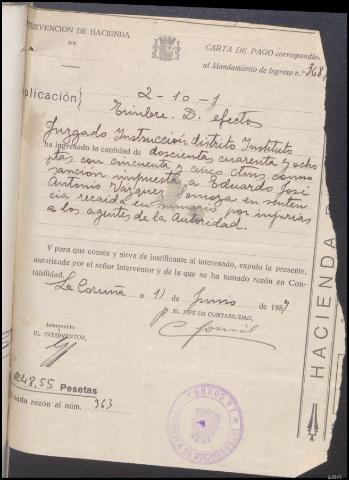 INTERVENCION DE HACIENDA
DE
CARTA DE PAGO correspondien
al Mandamiento de Ingreso n.º 368
plicación
2-10-1
Timbre. D. efectos
Juzgado Instrucción distrito Instituto
ha ingresado la cantidad de doscientas cuarenta y ocho
ptas con cincuenta y cinco ctms como
sanción impuesta a Eduardo José
Antonio Vázquez Pomoza en senten
cia recaida en sumario por injurias
a los agentes de la Autoridad.
Y para que conste y sirva de justificante al interesado, expido la presente,
autorizada por el señor Interventor y de la que se ha tomado razón en Con-
tabilidad.
La Coruña a 11 de Junio de 1937
P EL JEFE DE CONTABILIDAD,
Intervenido
EL INTERVENTOR,
248,55 Pesetas
mada razón al núm. 363
HACIENDA
LA CORUÑA